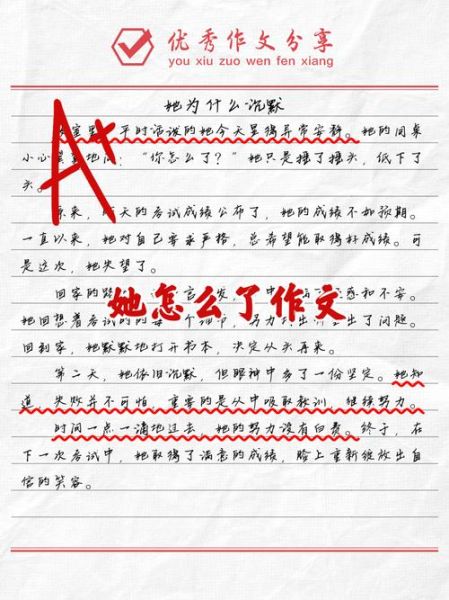 优秀作文分享
you xiu zuo wen fen xiang
她为什么沉默
A+
平时活泼的她今天显得异常安静。她的同桌
小心翼翼地问：“你怎么了？”她只是摇了摇头，低下了
头。
原来，昨天的考试成绩公布了，她的成绩不如预期。
一直以来，她对自己要求严格，总希望能取得好成绩。可
是这次，她失望了。
回家的路 言 发， 中 和不安。
她怎么了作文
她回想着考试时的每一个细节，努力 出了问题。
回到家，她默默地打开书本，决定从头再来。
第二天，她依旧沉默，但眼神中多了一份坚定。她知
道，失败并不可怕，重要的是从中吸取教训，继续努力。
时间一点一滴地过去，她的努力没有白费。终于，在
下一次考试中，她取得了满意的成绩，脸上重新绽放出自
信的笑容。